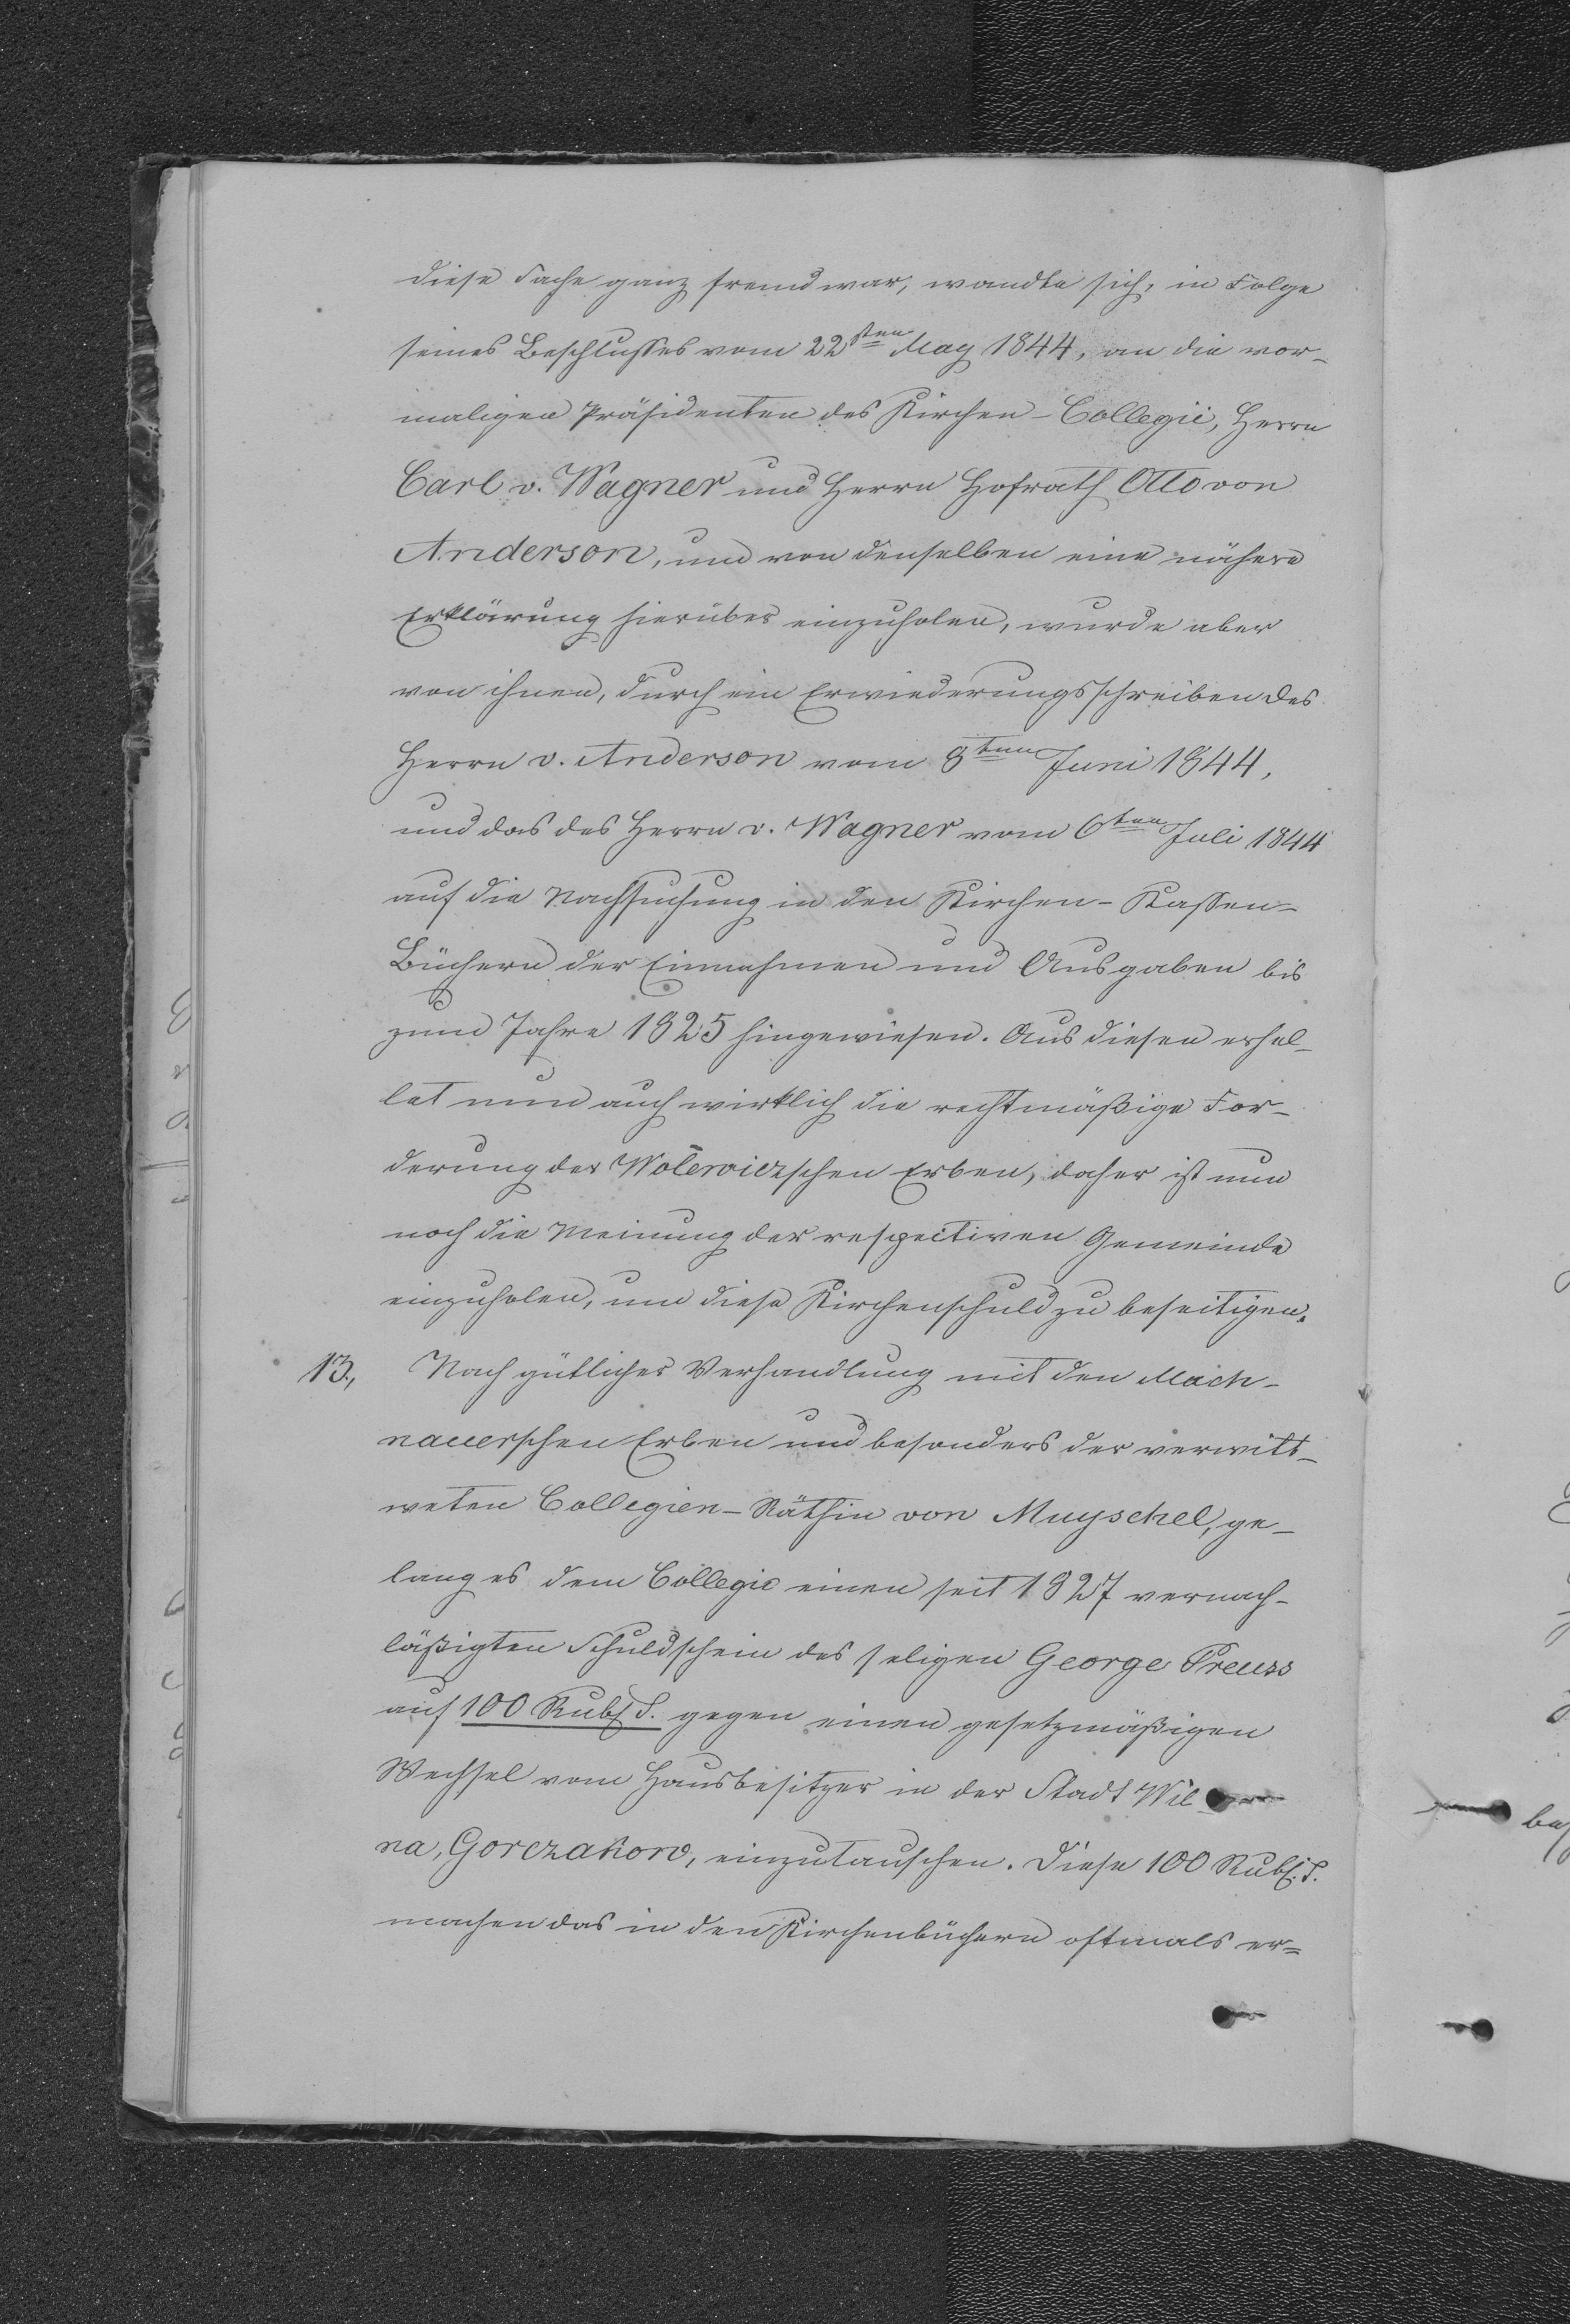 diese Sache ganz fremd war, wandte sich, in Folge
seines Beschlusses vom 22sten May 1844, an die vor-
maligen Präsidenten des Kirchen-Collegii, Herrn
Carl v. Wagner und Herrn Hofrath Otto von
Anderson, um von denselben eine nähere
Erklärung hierüber einzuholen, wurde aber
von ihnen, durch ein Erwiederungsschreiben des
Herrn v. Anderson vom 8ten Juni 1844,
und das des Herrn v. Wagner vom 6ten Juli 1844
auf die Nachsuchung in den Kirchen-Kassen-
Büchern der Einnahmen und Ausgaben bis
zum Jahre 1825 hingewiesen. Aus diesen erhel-
let nun auch wirklich die rechtmäßige For-
derung der Wolewiczschen Erben, daher ist nun
noch die Meinung der respectiven Gemeinde
einzuholen, um diese Kirchenschuld zu beseitigen.
13., Nach gütlicher Verhandlung mit den Mach-
nauerschen Erben und besonders der verwitt-
weten Collegien-Räthin von Muyschel, ge-
lang es dem Collegio einen seit 1827 vernach-
läßigten Schuldschein des seligen George Preuss
auf 100 Rub. S. gegen einen gesetzmäßigen
Wechsel vom Hausbesitzer in der Stadt Wil
na, Gorczakow, einzutauschen. Diese 100 Rub. S.
machen das in den Kirchenbüchern oftmals er=